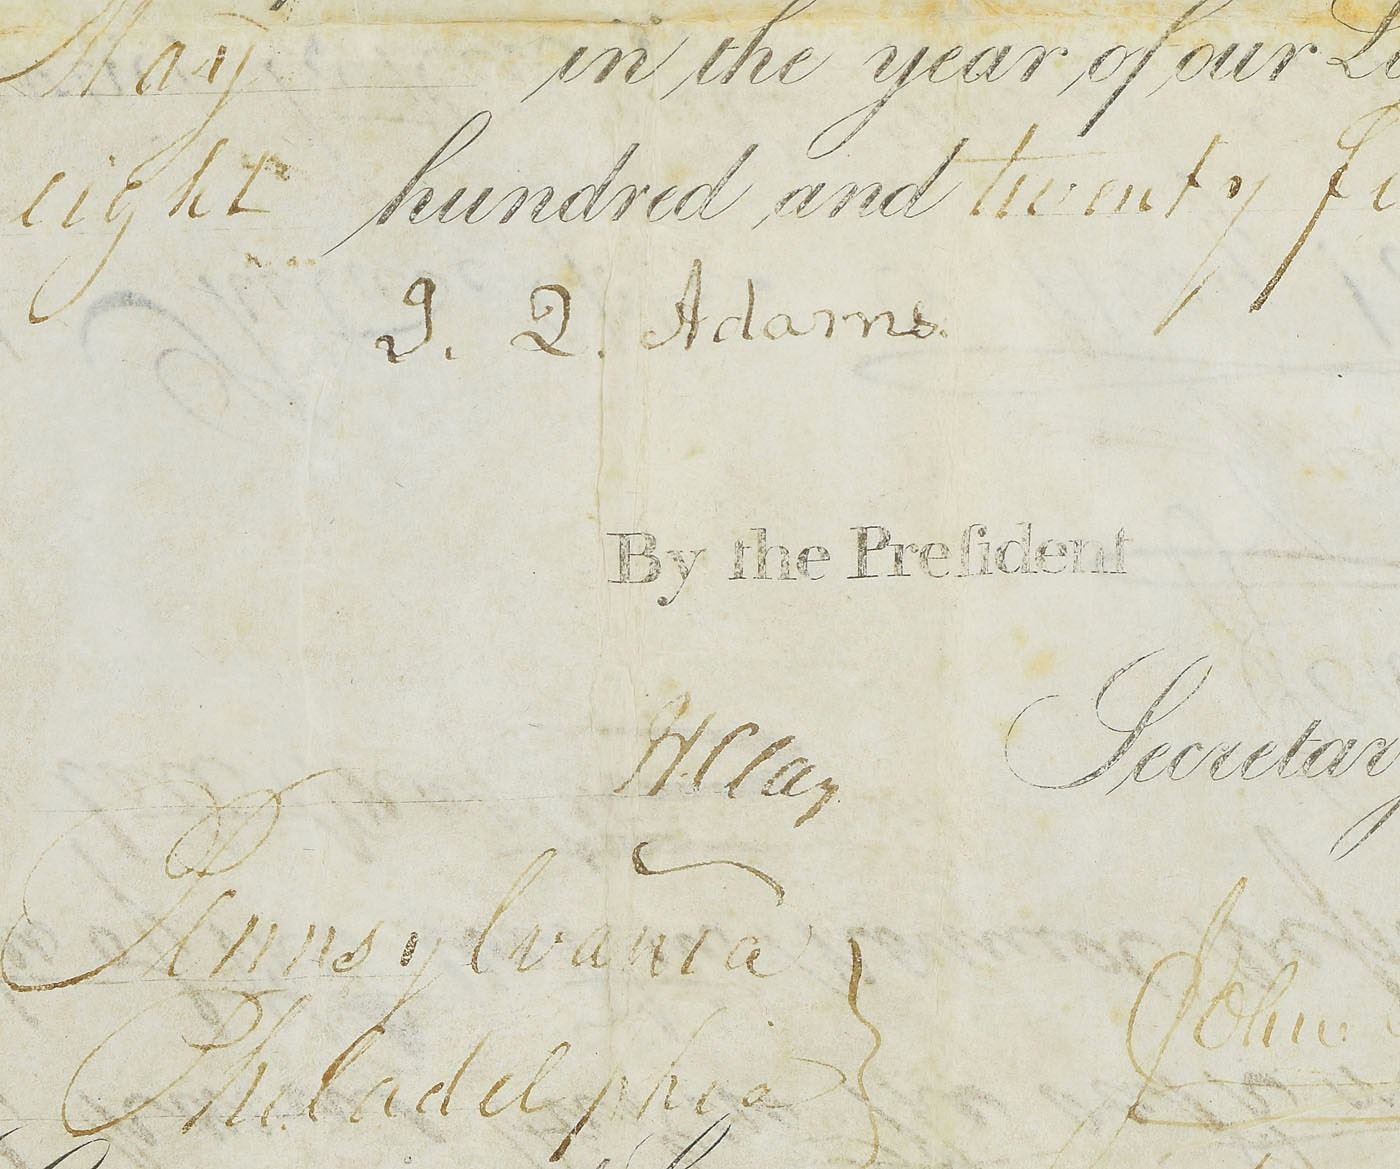 May in the year of our
eight hundred and twenty
J. Q. Adams.
By the Preſident
H. Clay Secretary
Pennsylvania
Philadelphia
John